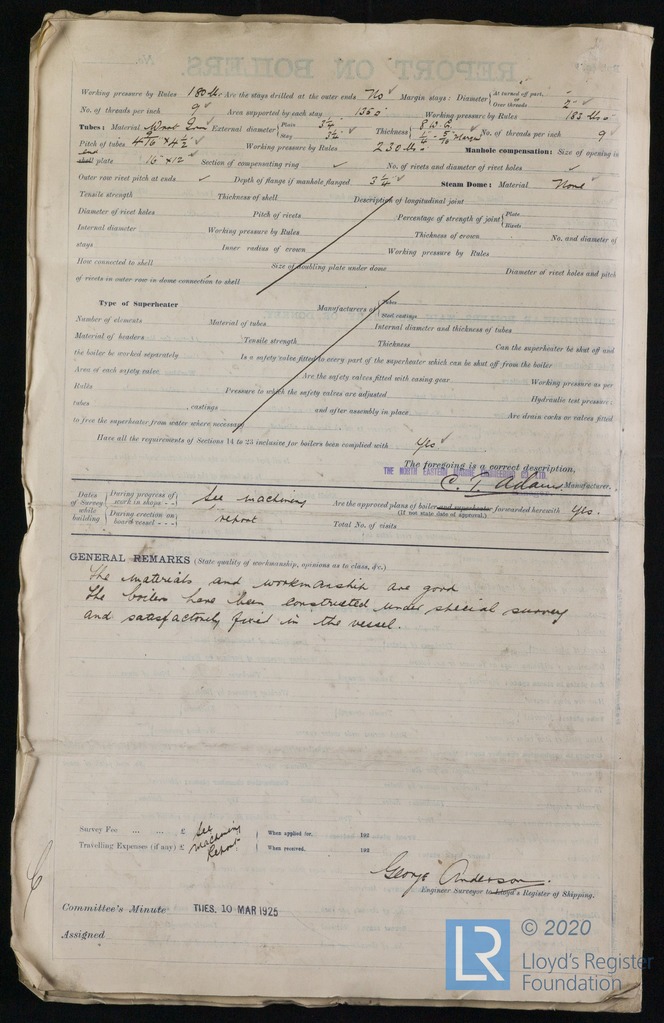 REPORT ON BOILERS.
Working pressure by Rules 180 lbs. Are the stays drilled at the outer ends No Margin stays: Diameter { At turned off part, or Over threads 2"
No. of threads per inch 9 Area supported by each stay Working pressure by Rules 183 lbs.
Tubes: Material Wrot Iron External diameter { Plain 3 1/4" Stay 3 1/4" Thickness { 8 W.G. 1/4" 5/16" No. of threads per inch 9
Pitch of tubes 4 9/16" x 4 1/2" Working pressure by Rules 230 lbs. Manhole compensation: Size of opening in
End shell plate 16" x 12" Section of compensating ring No. of rivets and diameter of rivet holes
Outer row rivet pitch at ends Depth of flange if manhole flanged 3 1/4" Steam Dome: Material None
Tensile strength Thickness of shell Description of longitudinal joint
Diameter of rivet holes Pitch of rivets Percentage of strength of joint { Plate Rivets
Internal diameter Working pressure by Rules Thickness of crown No. and diameter of
stays Inner radius of crown Working pressure by Rules
How connected to shell Size of doubling plate under dome Diameter of rivet holes and pitch
of rivets in outer row in dome connection to shell
Type of Superheater Manufacturers of { Tubes Steel castings
Number of elements Material of tubes Internal diameter and thickness of tubes
Material of headers Tensile strength Thickness Can the superheater be shut off and
the boiler be worked separately Is a safety valve fitted to every part of the superheater which can be shut off from the boiler
Area of each safety valve Are the safety valves fitted with easing gear Working pressure as per
Rules Pressure to which the safety valves are adjusted Hydraulic test pressure:
tubes, castings and after assembly in place Are drain cocks or valves fitted
to free the superheater from water where necessary
Have all the requirements of Sections 14 to 23 inclusive for boilers been complied with Yes
The foregoing is a correct description,
THE NORTH EASTERN MARINE ENGINEERING CO. LTD.
C. T. Adams Manufacturer.
Dates of Survey while building { During progress of work in shops - - See machinery Are the approved plans of boiler and superheater forwarded herewith Yes.
(If not state date of approval.)
During erection on board vessel - - - report Total No. of visits
GENERAL REMARKS (State quality of workmanship, opinions as to class, &c.)
The materials and workmanship are good
The boilers have been constructed under special survey
and satisfactorily fixed in the vessel.
Survey Fee ... ... £ See When applied for, 192
Travelling Expenses (if any) £ machinery Report. When received, 192
George Anderson.
Engineer Surveyor to Lloyd's Register of Shipping.
Committee's Minute TUES. 10 MAR 1925
Assigned
LR © 2020
Lloyd's Register
Foundation